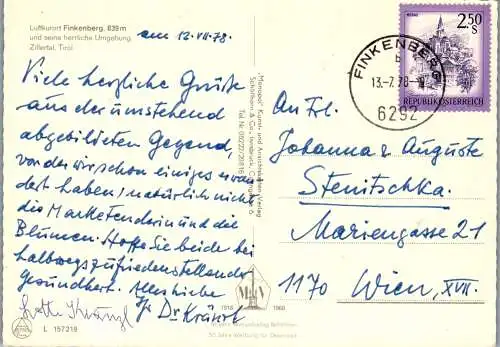 Luftkurort Finkenberg, 839 m
und seine herrliche Umgebung
Zillertal, Tirol
am 12.VII.78.
Viele herzliche Grüße
aus der umstehend
abgebildeten Gegend,
von der wir schon einiges
dert haben, natürlich nicht
die Marketenderin und die
Blumen. Hoffe Sie beide bei
halbwegs zufriedenstellender
Gesundheit. Alles Liebe
Ihr Dr
L 157218
"Monopol" Kunst- und Ansichtskarten-Verlag
Schöllhorn & Co., Innsbruck,
Tel. Nr.
1918
1968
MV
50 Jahre Werbung für Österreich
FINKENBERG
b
13.-7.78-
6292
2.50
S
REPUBLIK ÖSTERREICH
An Frl.
Johanna & Auguste
Stenitschka.
Mariengasse 21
1170 Wien, XVII.